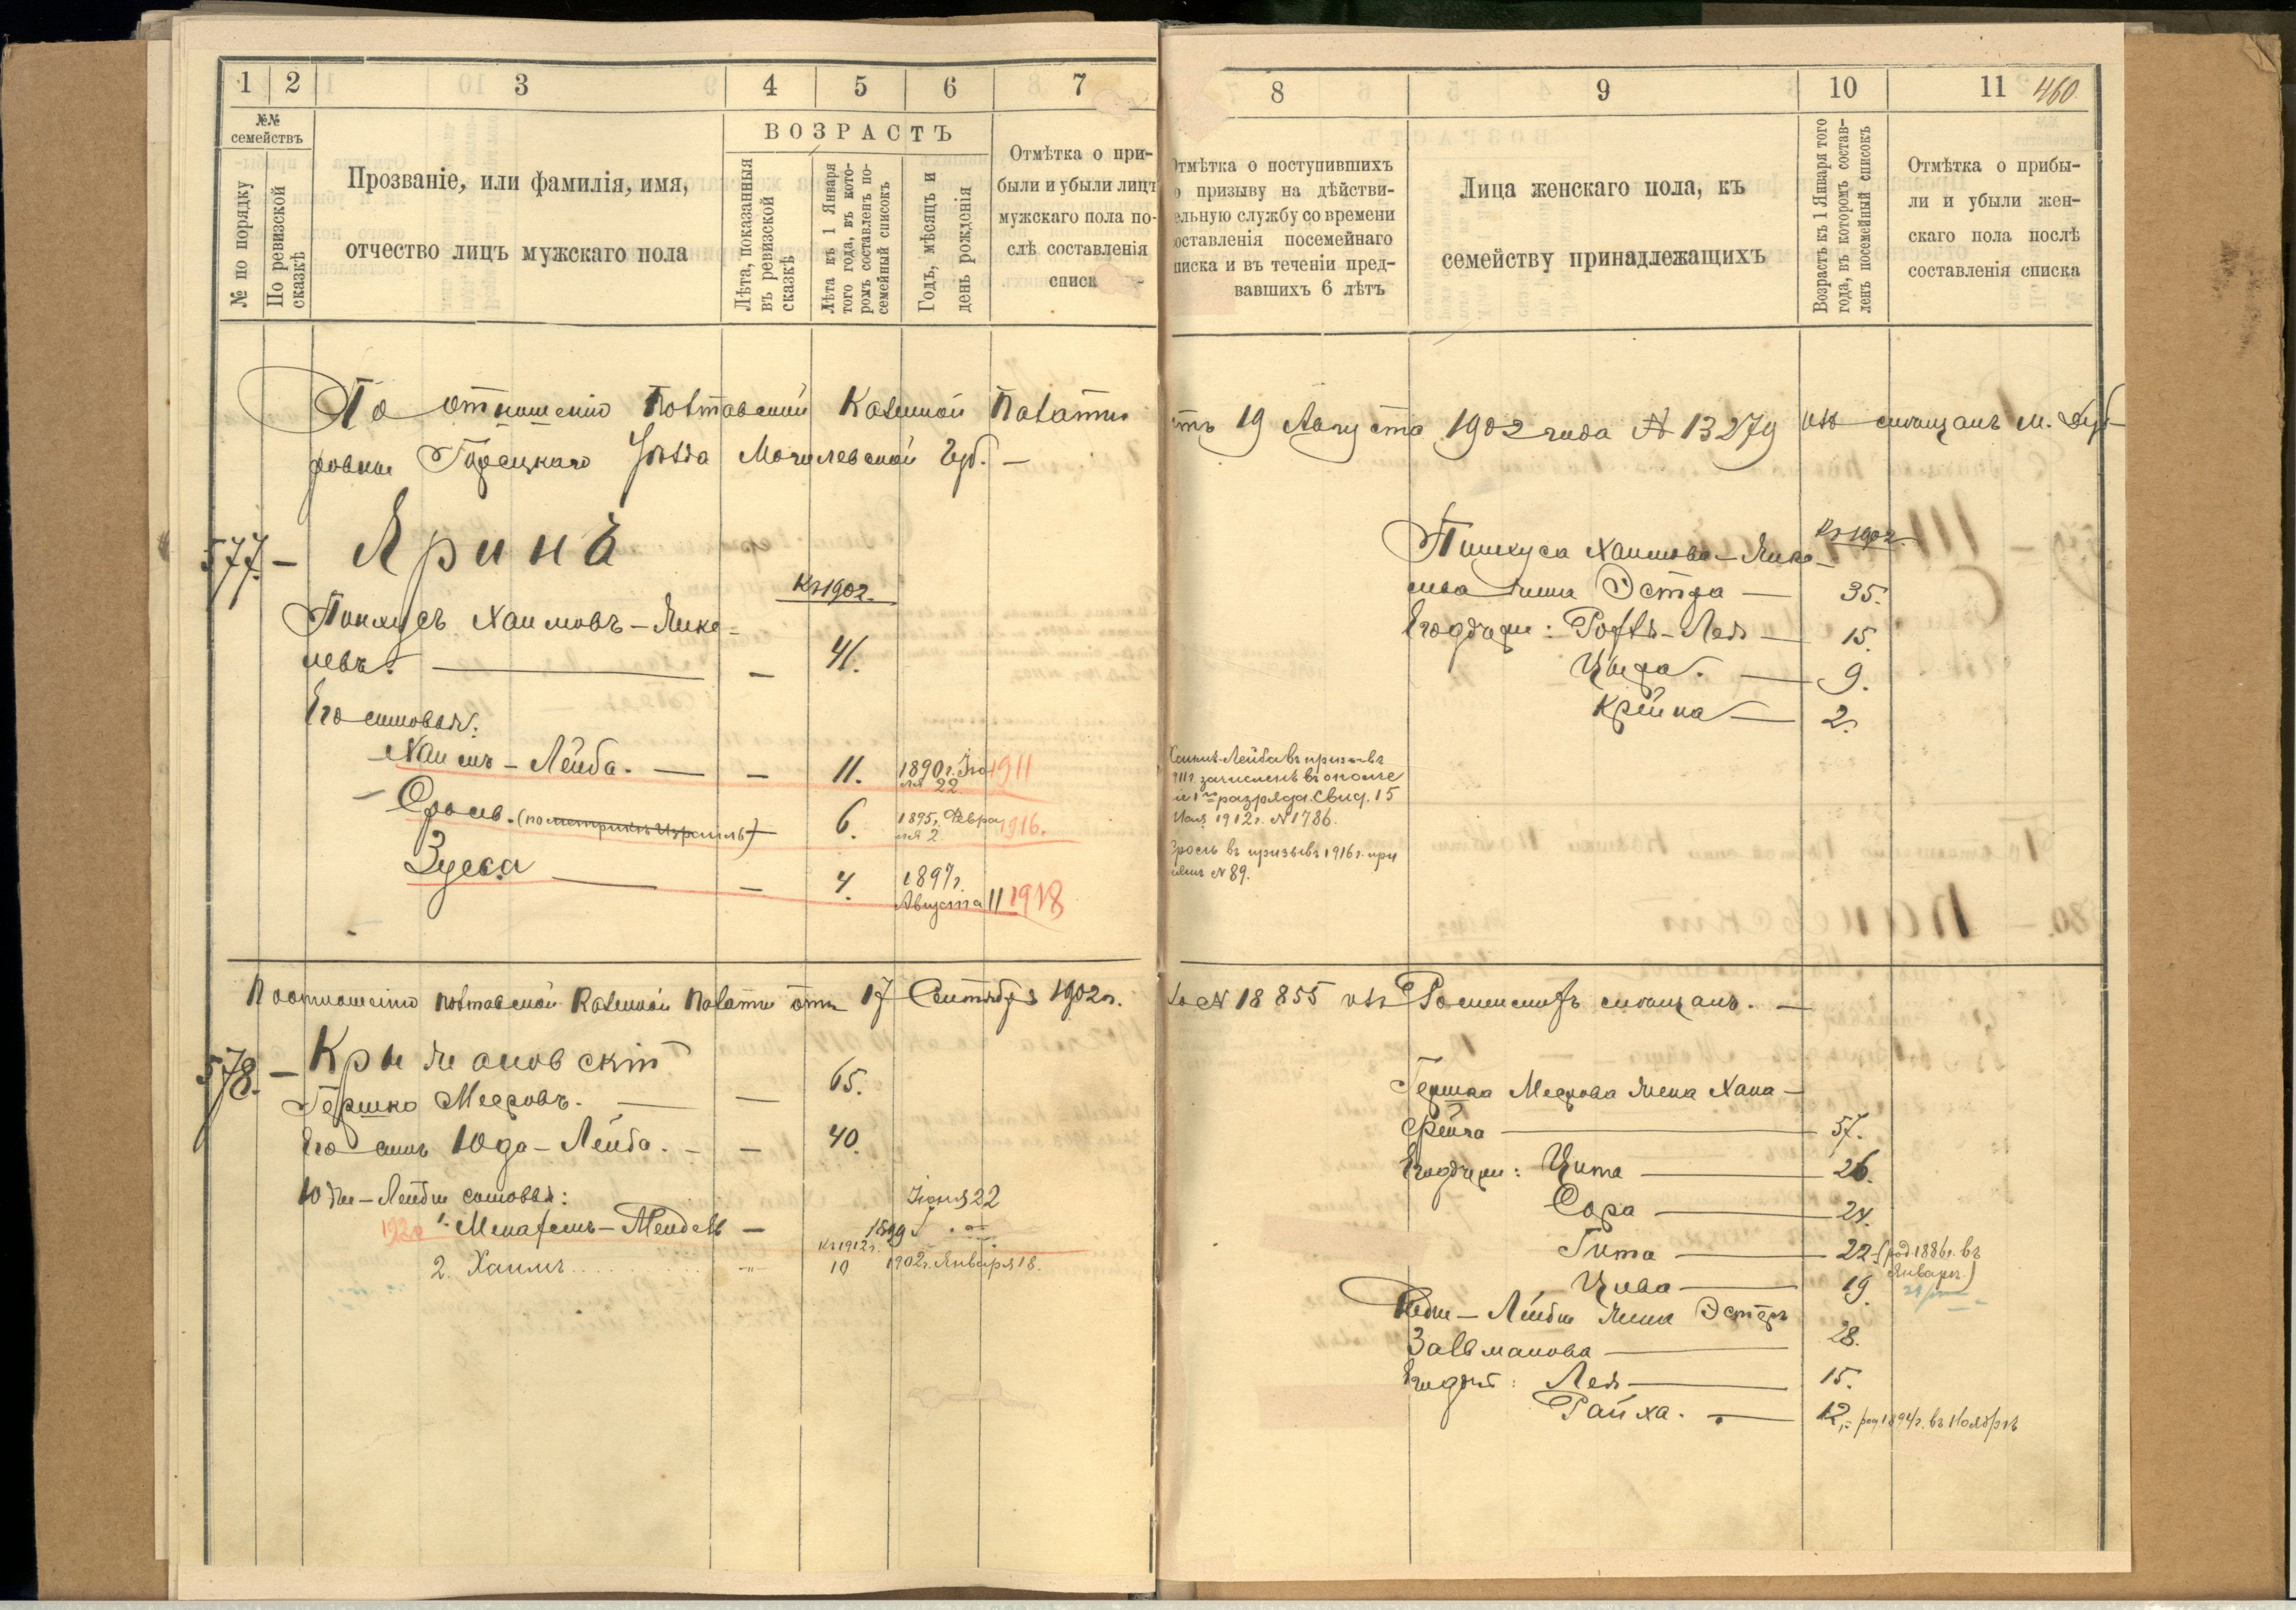 1 2 3 4 5 6 7
№№ семействъ
№ по порядку
По ревизской сказкѣ
Прозваніе, или фамилія, имя,
отчество лицъ мужскаго пола
ВОЗРАСТЪ
Лѣта, показанныя
въ ревизской
сказкѣ
Лѣта къ 1 Января
того года, въ кото-
ромъ составленъ по-
семейный списокъ
Годъ, мѣсяцъ и
день рожденія
Отмѣтка о при-
были и убыли лицъ
мужскаго пола по-
слѣ составленія
списк
По отношенію Полтавской Казенной Палаты
ровны Горецкаго Уѣзда Могилевской Губ. —
577. — Яринъ
Къ 1902.
Пинхусъ Хаимовъ-Янке-
левъ. — — 41.
Его сыновья:
Хаимъ-Лейба. — — 11. 1890 г. Iю- 1911
ля 22
Сроль. (по метрикѣ Израиль) 6. 1895 г. Февра 1916.
ля 2
Зуся — — 4. 1897 г.
Августа 11 1918
По отношенію Полтавской Казенной Палаты отъ 17 Сентября 1902 г.
578. — Крыжановскій
Гершко Мееровъ. — — 65.
Его сынъ Юда-Лейба. — — 40.
Юды-Лейбы сыновья: Iюня 22
1920 1. Менахемъ-Мендель — 1899
Къ 1912 г.
2. Хаимъ 10 1902 г. Января 18.
8 9 10 11 460
Отмѣтка о поступившихъ
о призыву на дѣйстви-
ельную службу со времени
оставленія посемейнаго
писка и въ теченіи пред-
вавшихъ 6 лѣтъ
Лица женскаго пола, къ
семейству принадлежащихъ
Возрастъ къ 1 Января того
года, въ которомъ состав-
ленъ посемейный списокъ
Отмѣтка о прибы-
ли и убыли жен-
скаго пола послѣ
составленія списка
отъ 19 Августа 1902 года № 13279 изъ мѣщанъ м. Дуб-
Къ 1902
Пинхуса Хаимова-Янке-
лева жена Эстра — 35.
Его дочери: Рохля-Лея — 15.
Цыра. — 9.
Крейна — 2.
Хаимъ-Лейба въ призывъ
1911 г. зачисленъ въ ополче
іе 1го разряда. Свид. 15
1912 г. № 1786.
Зроль въ призывъ 1916 г. при
№ 89.
№ 18855 изъ Роменскихъ мѣщанъ. —
Гершка Меерова жена Хана-
Фрейга — 57.
Его дочери: Цита — 26.
Сора — 24.
Гита — 22 — (род. 1886 г. въ
Январѣ)
Цива — 19.
Юды-Лейбы жена Эстеръ
Залманова — 28.
Его дочери: Лея — 15.
Райха. — 12. — род. 1894 г. въ Ноябрѣ